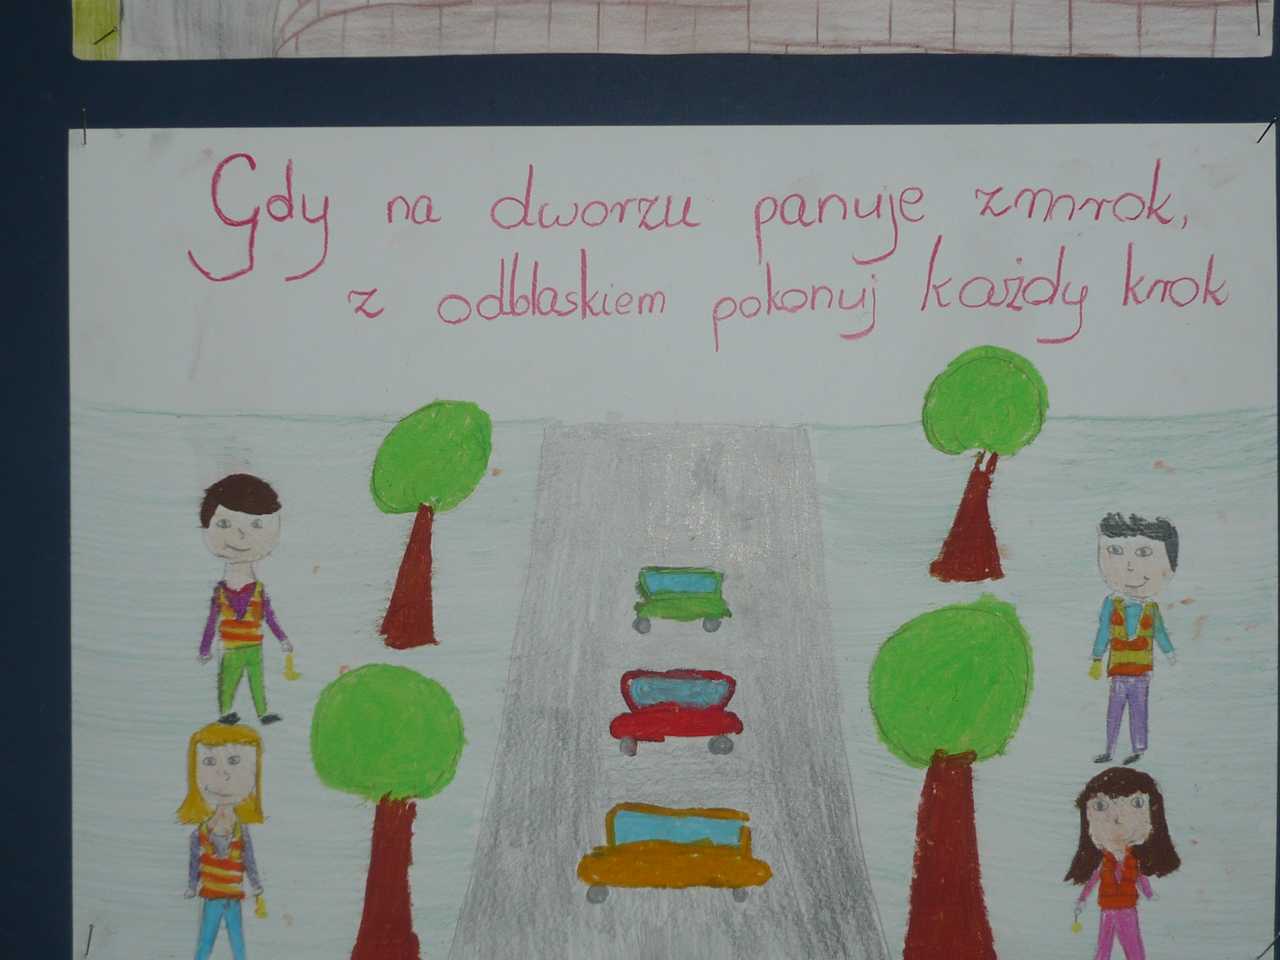 Gdy na dworzu panuje zmrok,
z odblaskiem pokonuj każdy krok